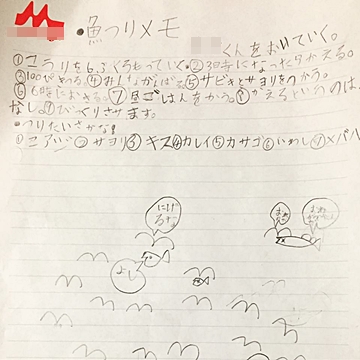 ・魚つりメモ
くんをおいていく。
①こおりを6ふくろもっていく。②3時になったらかえる。
③100ぴきつる④おしながばる⑤サビキとサヨリをつかう。
⑥6時におきる。⑦昼ごはんをかう。⑧かえろいのは、
なし。⑨びっくりさせます。
・つりたいさかな!
①アジ②サヨリ③キス④カレイ⑤カサゴ⑥いわし⑦メバル
にげ
るな
よし